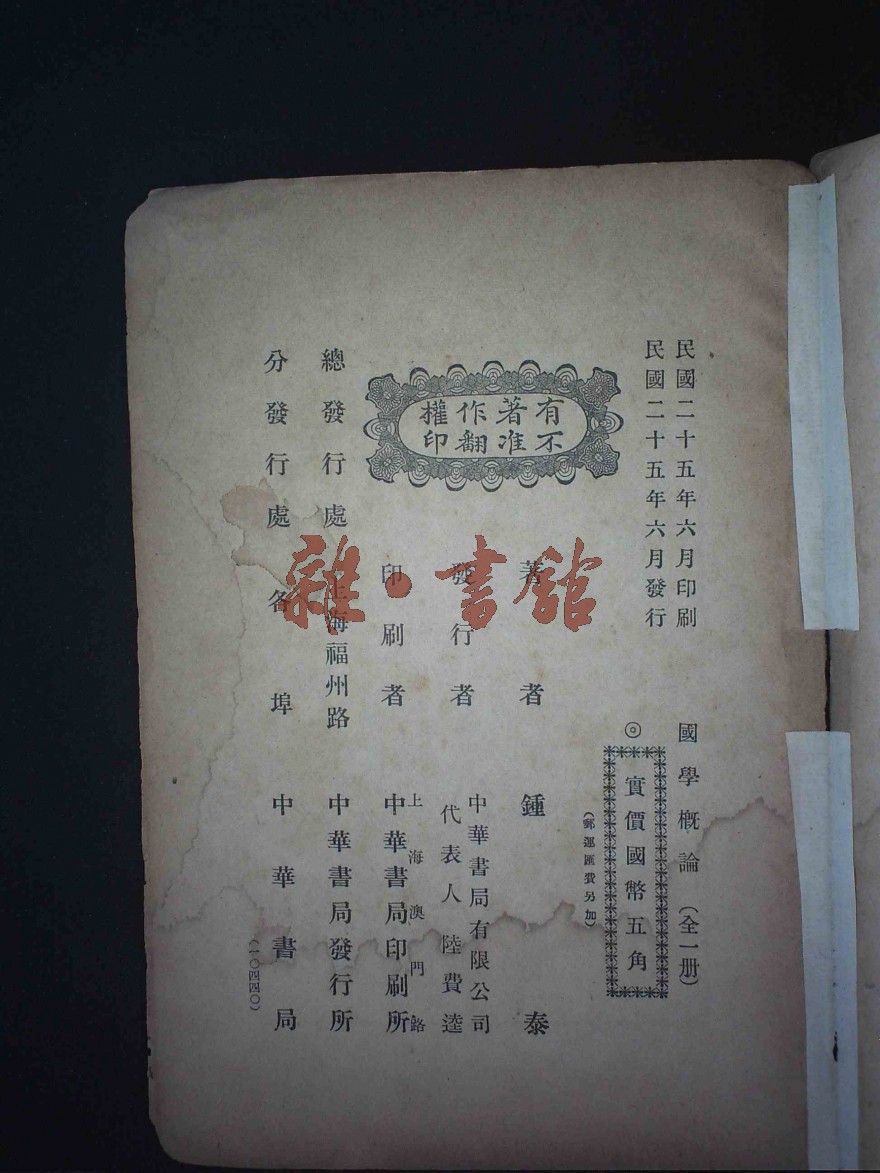 民國二十五年六月印刷
民國二十五年六月發行
國學概論（全一册）
◎實價國幣五角
（郵運匯費另加）
有著作權
不准翻印
著者 鍾泰
發行者 中華書局有限公司
代表人 陸費逵
印刷者 上海澳門路
中華書局印刷所
總發行處 上海福州路 中華書局發行所
分發行處 各埠 中華書局
（一〇四四〇）
雜·書館